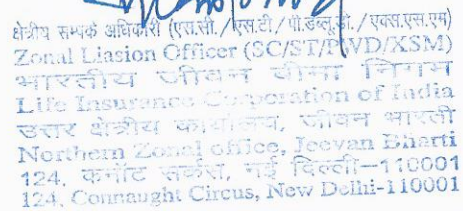 क्षेत्रीय सम्पर्क अधिकारी (एस.सी./एस.टी/पी.डब्लू.डी./एक्स.एस.एम)
Zonal Liasion Officer (SC/ST/PWD/XSM)
भारतीय जीवन बीमा निगम
Life Insurance Corporation of India
उत्तर क्षेत्रीय कार्यालय, जीवन भारती
Northern Zonal office, Jeevan Bharti
124, कनॉट सर्कस, नई दिल्ली-110001
124, Connaught Circus, New Delhi-110001